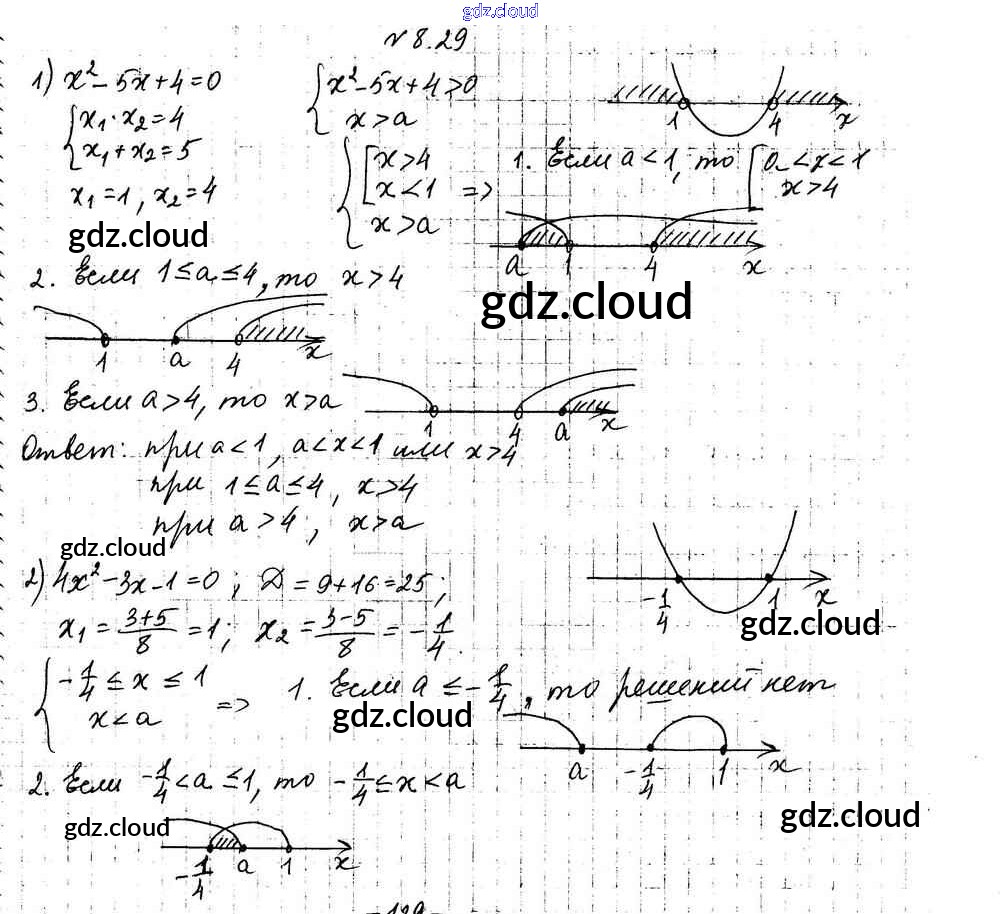 gdz.cloud
№ 8.29
1) x² - 5x + 4 = 0
{ x₁ · x₂ = 4
x₁ + x₂ = 5
x₁ = 1, x₂ = 4
gdz.cloud
{ x² - 5x + 4 > 0
x > a
{ [ x > 4
x < 1
x > a
=>
1 4 x
1. Если a < 1, то [ a < x < 1
x > 4
a 1 4 x
2. Если 1 ≤ a ≤ 4, то x > 4
gdz.cloud
1 a 4 x
3. Если a > 4, то x > a
1 4 a x
Ответ: при a < 1, a < x < 1 или x > 4
при 1 ≤ a ≤ 4, x > 4
при a > 4, x > a
gdz.cloud
2) 4x² - 3x - 1 = 0; D = 9 + 16 = 25;
x₁ = (3+5)/8 = 1; x₂ = (3-5)/8 = -1/4.
-1/4 1 x
gdz.cloud
{ -1/4 ≤ x ≤ 1
x < a
=> 1. Если a ≤ -1/4, то решений нет
gdz.cloud
a -1/4 1 x
2. Если -1/4 < a ≤ 1, то -1/4 ≤ x < a
gdz.cloud
gdz.cloud
-1/4 a 1 x
- 129 -